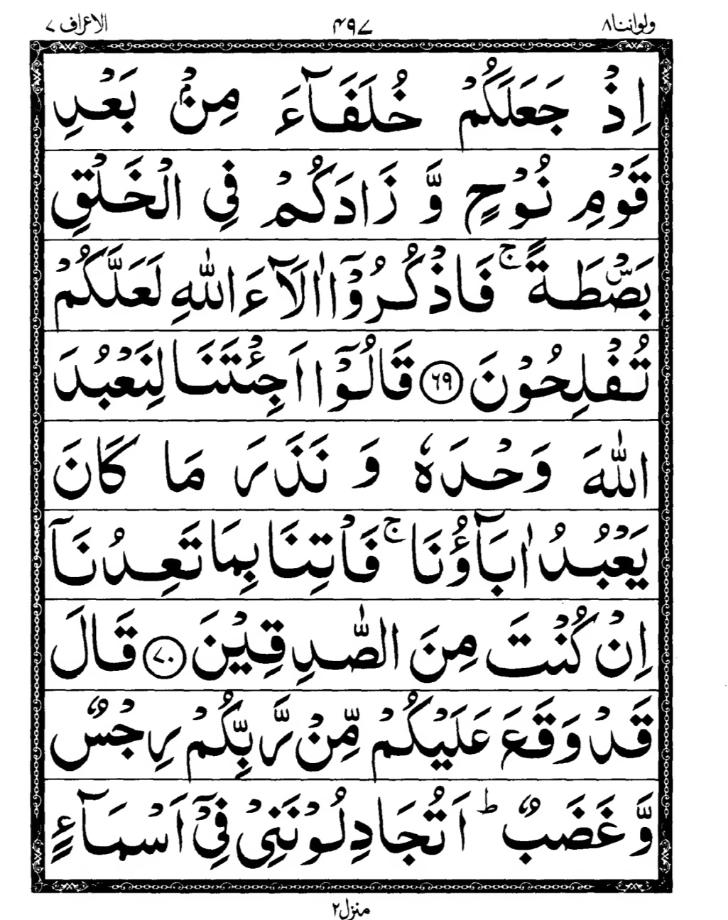 ولواننا ٨ ٤٩٧ الاعراف ٧
اِذْ جَعَلَكُمْ خُلَفَآءَ مِنْۢ بَعْدِ
قَوْمِ نُوْحٍ وَّ زَادَكُمْ فِی الْخَلْقِ
بَصْۜطَةً ۚ فَاذْكُرُوْۤا اٰلَآءَ اللّٰهِ لَعَلَّكُمْ
تُفْلِحُوْنَ ﴿۶۹﴾ قَالُوْۤا اَجِئْتَنَا لِنَعْبُدَ
اللّٰهَ وَحْدَهٗ وَ نَذَرَ مَا كَانَ
یَعْبُدُ اٰبَآؤُنَا ۚ فَاْتِنَا بِمَا تَعِدُنَاۤ
اِنْ كُنْتَ مِنَ الصّٰدِقِیْنَ ﴿۷۰﴾ قَالَ
قَدْ وَقَعَ عَلَیْكُمْ مِّنْ رَّبِّكُمْ رِجْسٌ
وَّ غَضَبٌ ؕ اَتُجَادِلُوْنَنِیْ فِیْۤ اَسْمَآءٍ
منزل ٢